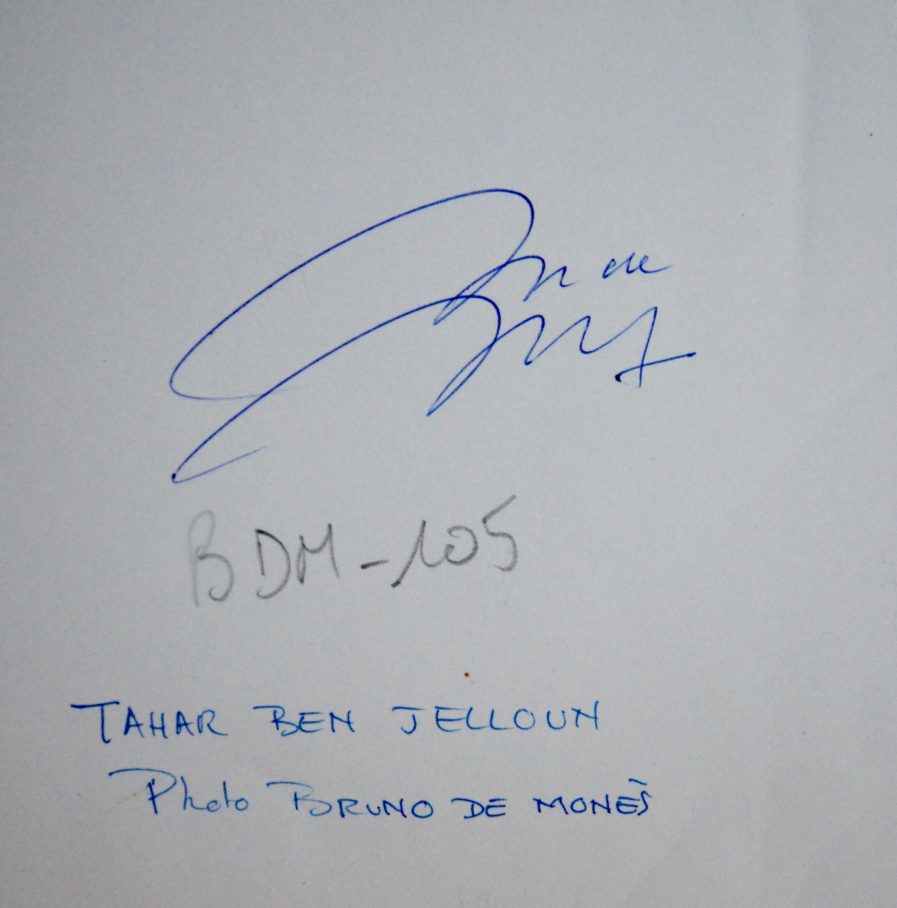 de
BDM-105
TAHAR BEN JELLOUN
Photo BRUNO DE MONÈS